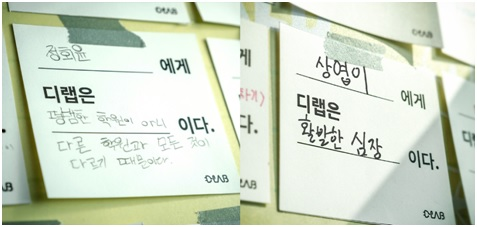 정희윤
에게
디랩은
평범한 학원이 아니
이다.
다른 학원과 모든 것이
다르기 때문이다.
DLAB
상엽이
에게
디랩은
활발한 심장
이다.
DLAB
DLAB